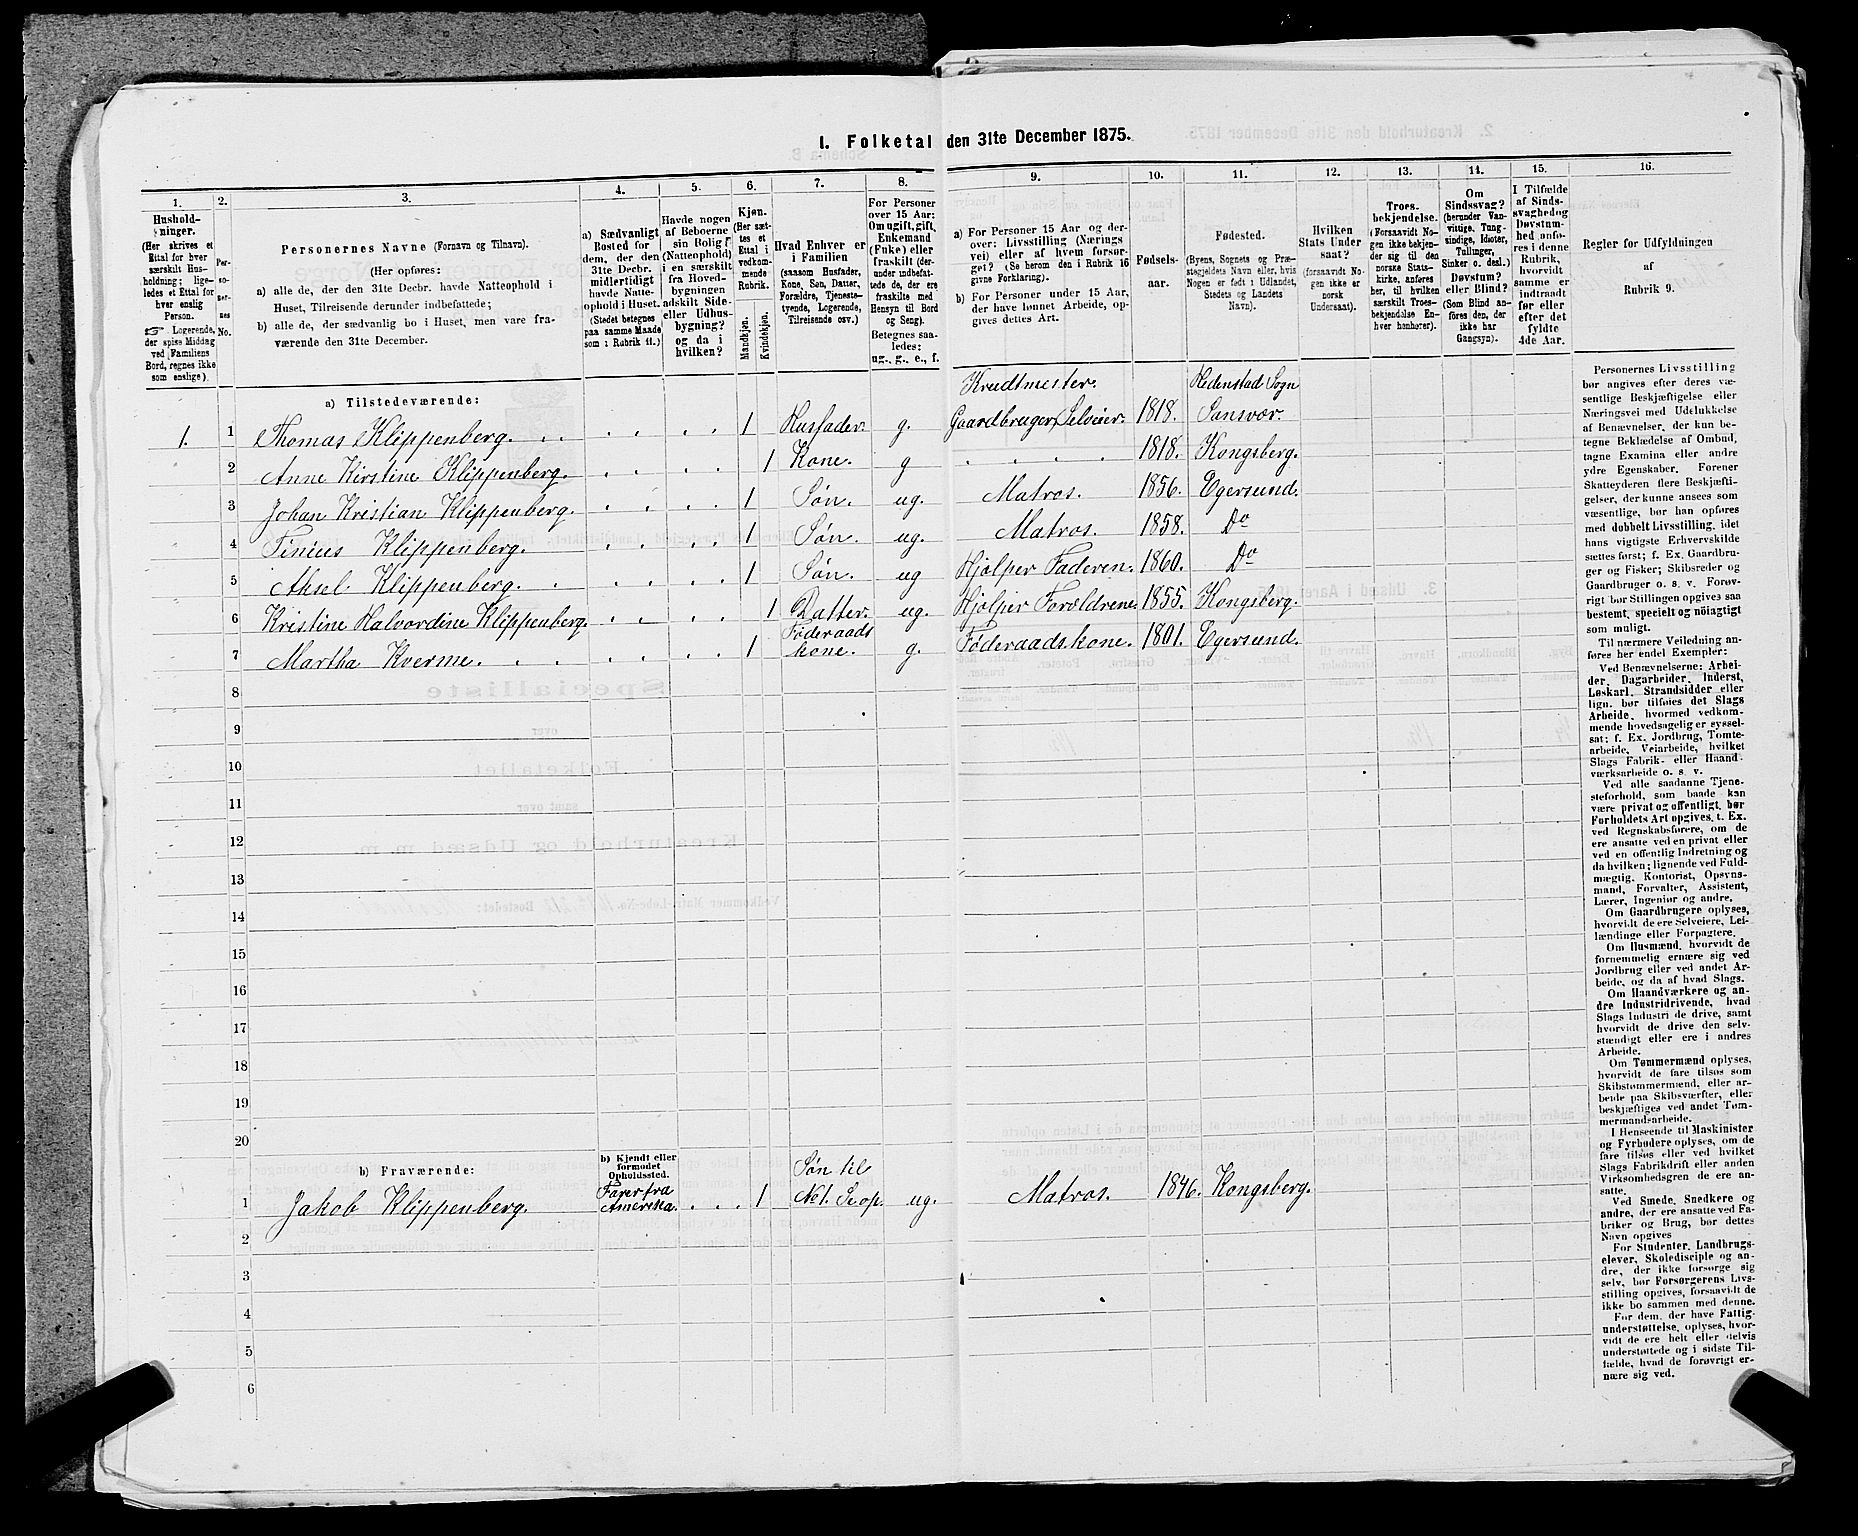 1. Folketal den 31te December 1875.
1.
2.
3.
4.
5.
6.
7.
8.
9.
10.
11.
12.
13.
14.
15.
16.
Hushold-
ninger.
(Her skrives et
Ettal for hver
særskilt Hus-
holdning; lige-
ledes et Ettal for
hver enslig
Person.
☞ Logerende,
der spise Middag
ved Familiens
Bord, regnes ikke
som enslige).
Per-
so-
ner-
nes
No.
Personernes Navne (Fornavn og Tilnavn).
(Her opføres:
a) alle de, der den 31te Decbr. havde Natteophold i
Huset, Tilreisende derunder indbefattede;
b) alle de, der sædvanlig bo i Huset, men vare fra-
værende den 31te December.
a) Sædvanligt
Bosted for
dem, der den
31te Decbr.
midlertidigt
havde Natte-
ophold i Huset.
(Stedet betegnes
paa samme Maade
som i Rubrik 11.)
Havde nogen
af Beboerne
sin Bolig
(Natteophold)
i en særskilt
fra Hoved-
bygningen
adskilt Side-
eller Udhus-
bygning?
og da i
hvilken?
Kjøn.
(Her sæt-
tes et
Ettal i
vedkom-
mende
Rubrik.
Mandkjøn.
Kvindekjøn.
Hvad Enhver er
i Familien
(saasom Husfader,
Kone, Søn, Datter,
Forældre, Tjeneste-
tyende, Logerende,
Tilreisende osv.)
For Personer
over 15 Aar:
Om ugift, gift,
Enkemand
(Enke) eller
fraskilt (der-
under indbefat-
tede de, der ere
fraskilte med
Hensyn til Bord
og Seng).
Betegnes saa-
ledes:
ug., g., e., f.
a) For Personer 15 Aar og der-
over: Livsstilling (Nærings
vei) eller af hvem forsør-
get? (Se herom den i Rubrik 16
givne Forklaring).
b) For Personer under 15 Aar,
der have lønnet Arbeide, op-
gives dettes Art.
Fødsels-
aar.
Fødested.
(Byens, Sognets og Præ-
stegjeldets Navn eller, hvis
Nogen er født i Udlandet,
Stedets og Landets
Navn).
Hvilken
Stats Under
saat?
(forsaavidt No-
gen ikke er
norsk
Undersaat).
Troes-
bekjendelse.
(Forsaavidt No-
gen ikke bekjen-
der sig til den
norske Stats-
kirke, anføres
her, til hvilken
særskilt Troes-
bekjendelse En-
hver henhører).
Om
Sindssvag?
(herunder Van-
vittige, Tung-
sindige, Idioter,
Tullinger,
Sinker o. desl.)
Døvstum?
eller Blind?
(Som Blind an-
føres den, der
ikke har
Gangsyn).
I Tilfælde
af Sinds-
svaghed og
Døvstum-
hed anfø-
res i denne
Rubrik,
hvorvidt
samme er
indtraadt
før eller
efter det
fyldte
4de Aar.
Regler for Udfyldningen
af
Rubrik 9.
a) Tilstedeværende:
Krudtmester. Hedenstad Sogn
1. 1 Thomas Klippenberg. 1 Husfader g. Gaardbruger, Selveier. 1818. Sansvær.
2 Anne Kirstine Klippenberg. 1 Kone. g 1818. Kongsberg.
3 Johan Kristian Klippenberg. 1 Søn. ug. Matros. 1856. Egersund.
4 Tinius Klippenberg. 1 Søn. ug. Matros. 1858. Do
5 Aksel Klippenberg. 1 Søn. ug Hjælper Faderen. 1860. Do
6 Kristine Halvordine Klippenberg. 1 Datter. ug. Hjælper Forældrene. 1855. Kongsberg.
7 Martha Kverme. 1 Føderaads kone. g. Føderaadskone. 1801. Egersund.
8
9
10
11
12
13
14
15
16
17
18
19
20
b) Fraværende:
b) Kjendt eller
formodet
Opholdssted.
1 Jakob Klippenberg. Farer fra Amerika. 1 Søn til No 1. g. op. ug. Matros. 1846. Kongsberg.
2
3
4
5
6
Personernes Livsstilling
bør angives efter deres væ-
sentlige Beskjæftigelse eller
Næringsvei med Udelukkelse
af Benævnelser, der kun be-
tegne Beklædelse af Ombud,
tagne Examina eller andre
ydre Egenskaber. Forener
Skatteyderen flere Beskjæfti-
gelser, der kunne ansees som
væsentlige, bør han opføres
med dobbelt Livsstilling, idet
hans vigtigste Erhvervskilde
sættes først; f. Ex. Gaardbru-
ger og Fisker; Skibsreder og
Gaardbruger o. s. v. Forøv-
rigt bør Stillingen opgives saa
bestemt, specielt og nöiagtigt
som muligt.
Til nærmere Veiledning an-
føres her endel Exempler:
Ved Benævnelserne: Arbei-
der, Dagarbeider, Inderst,
Løskarl, Strandsidder eller
lign. bør tilføies det Slags
Arbeide, hvormed vedkom-
mende hovedsagelig er syssel-
sat; f. Ex. Jordbrug, Tomte-
arbeide, Veiarbeide, hvilket
Slags Fabrik- eller Haand-
værksarbeide o. s. v.
Ved alle saadanne Tjene-
steforhold, som baade kan
være privat og offentligt, bør
Forholdets Art opgives, t. Ex.
ved Regnskabsførere, om de
ere ansatte ved en privat eller
ved en offentlig Indretning og
da hvilken; lignende ved Fuld-
mægtig, Kontorist, Opsyns-
mand, Forvalter, Assistent,
Lærer, Ingeniør og andre.
Om Gaardbrugere oplyses,
hvorvidt de ere Selveiere, Lei-
lændinge eller Forpagtere.
Om Husmænd, hvorvidt de
fornemmelig ernære sig ved
Jordbrug eller ved andet Ar-
beide, og da af hvad Slags.
Om Haandværkere og an-
dre Industridrivende, hvad
Slags Industri de drive, samt
hvorvidt de drive den selv-
stændigt eller ere i andres
Arbeide.
Om Tømmermænd oplyses,
hvorvidt de fare tilsøs som
Skibstømmermænd, eller ar-
beide paa Skibsværfter, eller
beskjæftiges ved andet Tøm-
mermandsarbeide.
I Henseende til Maskinister
og Fyrbødere oplyses, om de
fare tilsøs eller ved hvilket
Slags Fabrikdrift eller anden
Virksomhedsgren de ere an-
satte.
Ved Smede, Snedkere og
andre, der ere ansatte ved Fa-
briker og Brug, bør dettes
Navn opgives
For Studenter, Landbrugs-
elever, Skoledisciple og an-
dre, der ikke forsørge sig
selv, bør Forsørgerens Livs-
stilling opgives, forsaavidt de
ikke bo sammen med denne.
For dem, der have Fattig-
understøttelse, oplyses, hvor-
vidt de ere helt eller delvis
understøttede og i sidste Til-
fælde, hvad de forøvrigt er-
nære sig ved.